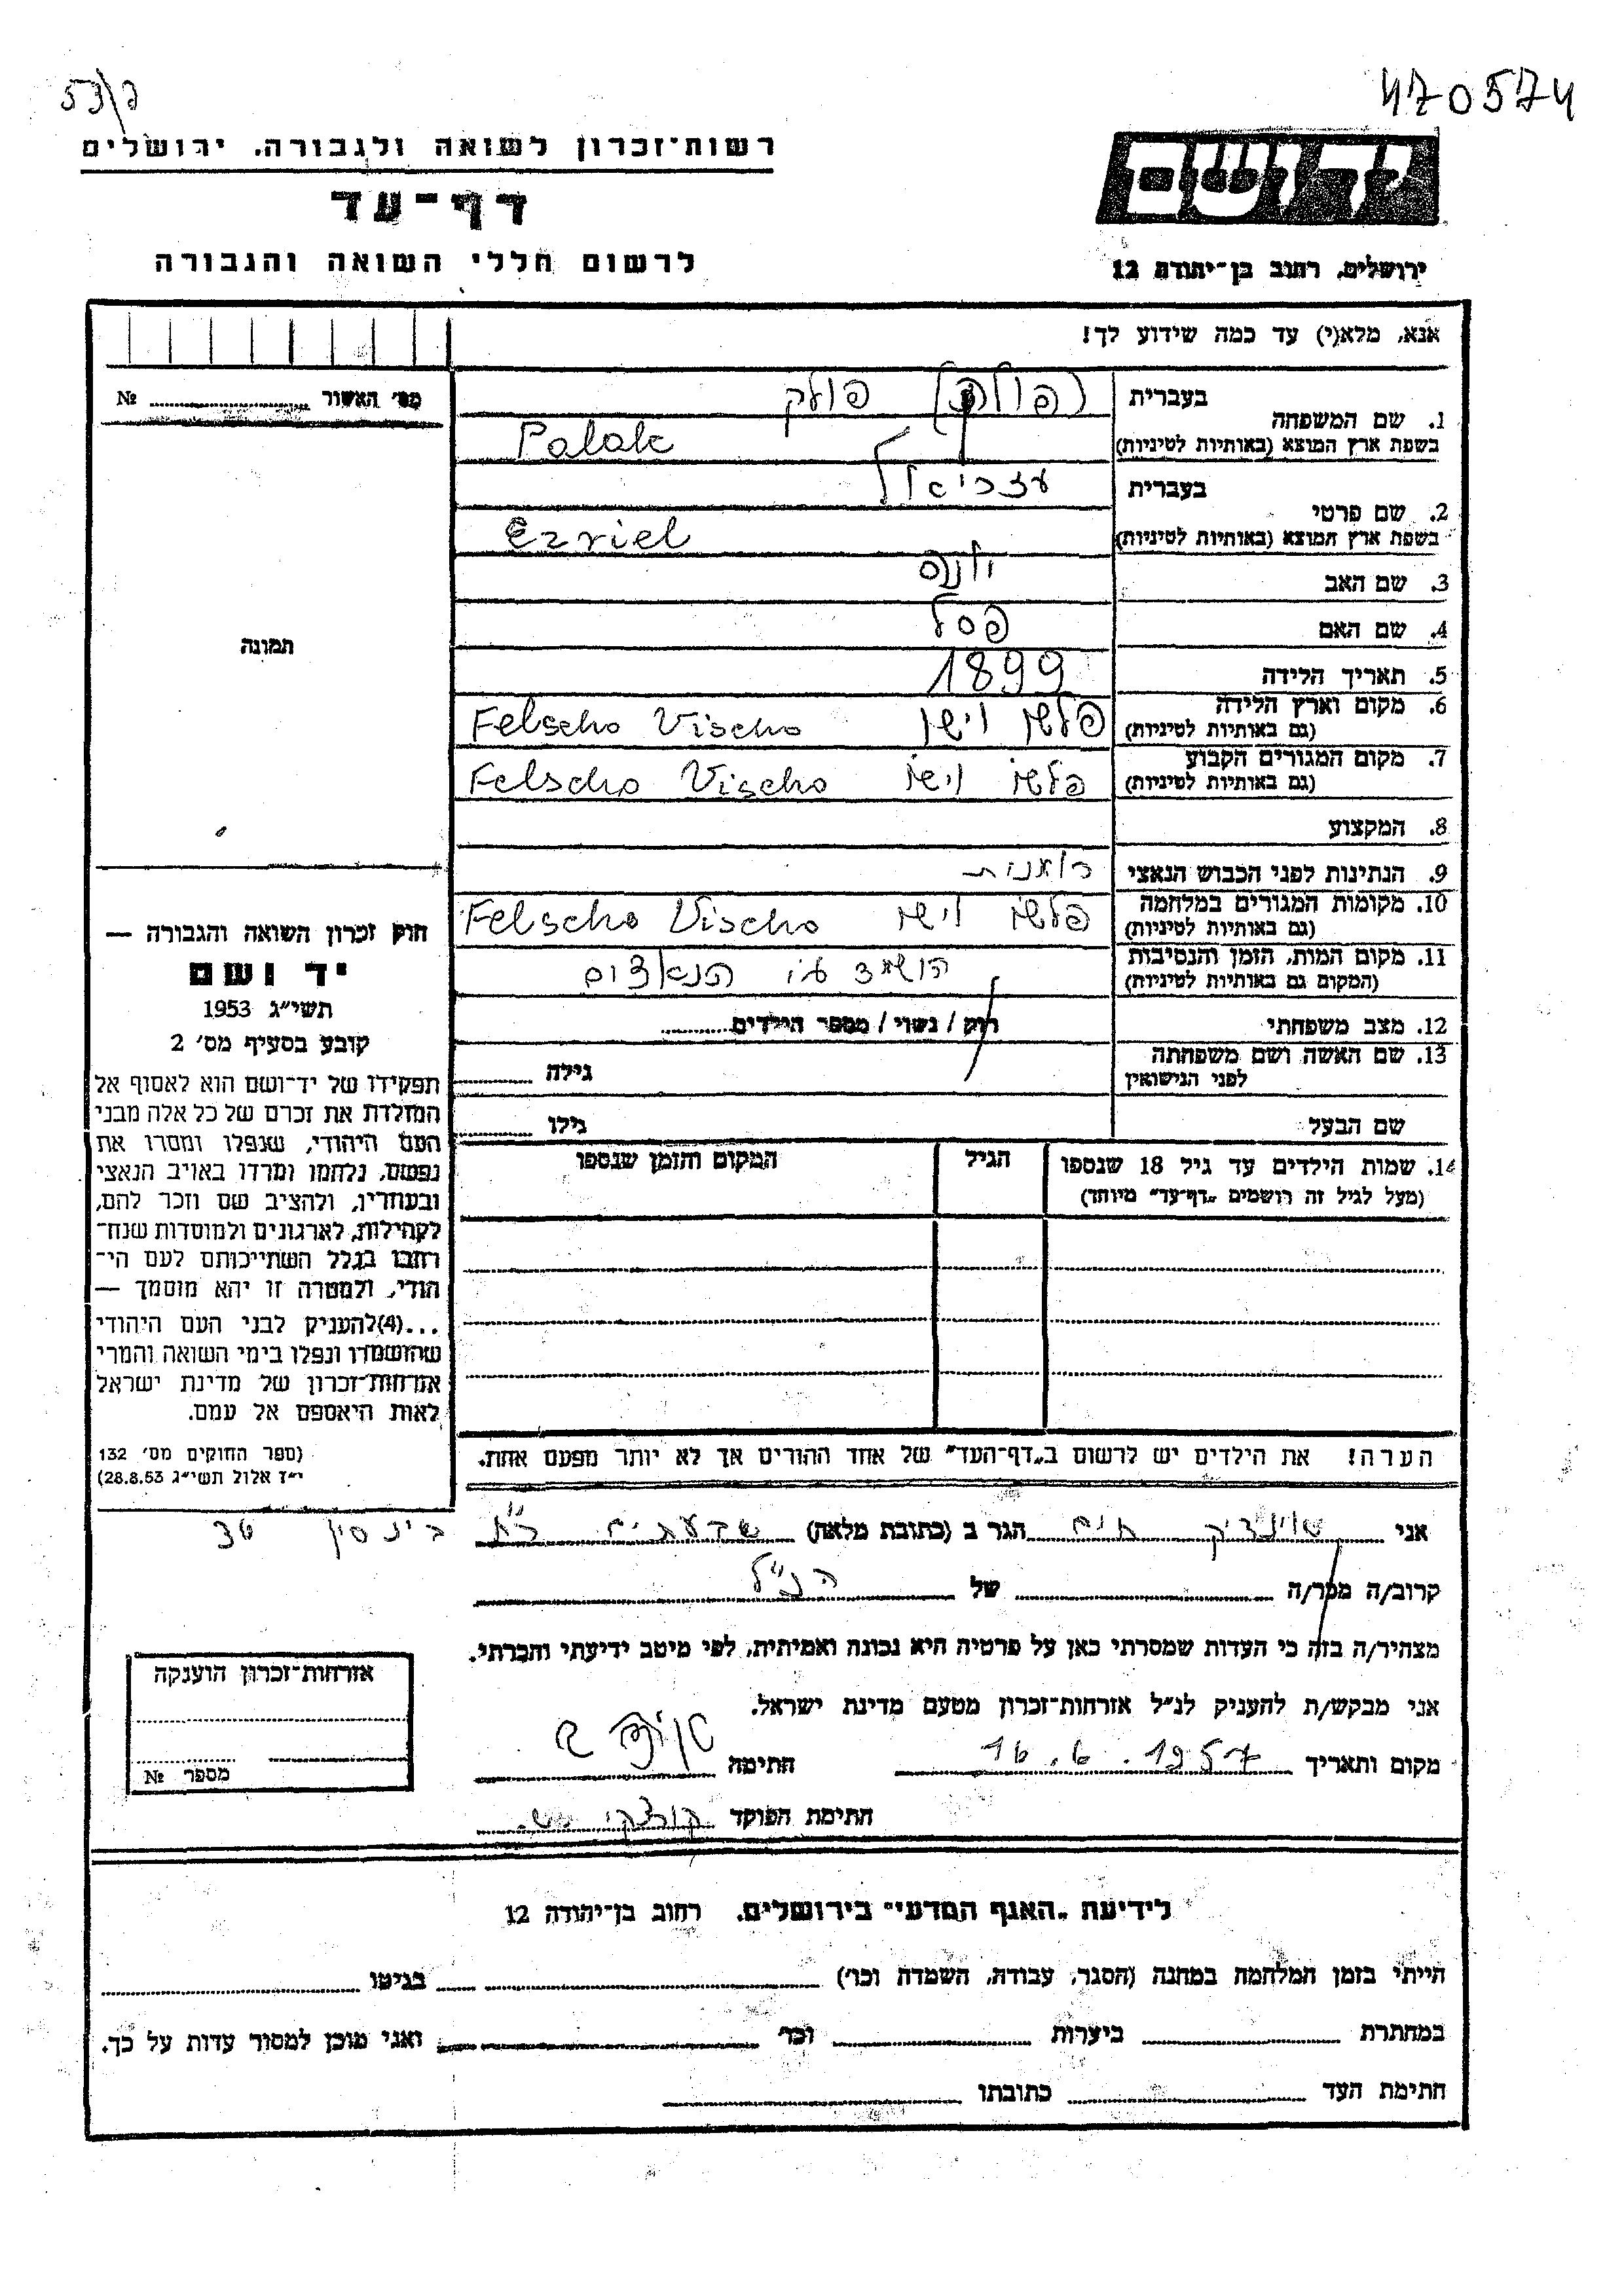 53/ק
470574
רשות־זכרון לשואה ולגבורה. ירושלים
יד ושם
דף־עד
לרשום חללי השואה והגבורה
ירושלים, רחוב בן־יהודה 12
אנא, מלא(י) עד כמה שידוע לך!
מס׳ האשור № 
1. שם המשפחה
בעברית (פולק) פולק
בשפת ארץ המוצא (באותיות לטיניות) Polak
2. שם פרטי
בעברית עזריאל
בשפת ארץ המוצא (באותיות לטיניות) Ezriel
3. שם האב יונה
4. שם האם פסל
תמונה
5. תאריך הלידה 1899
6. מקום וארץ הלידה
(גם באותיות לטיניות) פלשו וישו Felscho Vischo
7. מקום המגורים הקבוע
(גם באותיות לטיניות) פלשו וישו Felscho Vischo
8. המקצוע
9. הנתינות לפני הכבוש הנאצי רומנית
10. מקומות המגורים במלחמה
(גם באותיות לטיניות) פלשו וישו Felscho Vischo
11. מקום המות, הזמן והנסיבות
(המקום גם באותיות לטיניות) הושמד ע״י הנאצים
12. מצב משפחתי רוק / נשוי / מספר הילדים
13. שם האשה ושם משפחתה
לפני הנישואין גילה
שם הבעל גילו
14. שמות הילדים עד גיל 18 שנספו הגיל המקום והזמן שנספו
(מעל לגיל זה רושמים „דף־עד״ מיוחד)
חוק זכרון השואה והגבורה —
יד ושם
תשי״ג 1953
קובע בסעיף מס׳ 2
תפקידו של יד־ושם הוא לאסוף אל
המולדת את זכרם של כל אלה מבני
העם היהודי, שנפלו ומסרו את
נפשם, נלחמו ומרדו באויב הנאצי
ובעוזריו, ולהציב שם וזכר להם,
לקהילות, לארגונים ולמוסדות שנח־
רחבו בגלל השתייכותם לעם הי־
הודי, ולמטרה זו יהא מוסמך —
...(4)להעניק לבני העם היהודי
שהושמדו ונפלו בימי השואה והמרי
אזרחות־זכרון של מדינת ישראל
לאות היאספם אל עמם.
(ספר החוקים מס׳ 132
י״ז אלול תשי״ג 28.8.53)
הערה! את הילדים יש לרשום ב„דף־העד״ של אחד ההורים אך לא יותר מפעם אחת.
אני חיים הגר ב (כתובת מלאה) 36
קרוב/ה מכר/ה של הנ״ל
מצהיר/ה בזה כי העדות שמסרתי כאן על פרטיה היא נכונה ואמיתית, לפי מיטב ידיעתי והכרתי.
אני מבקש/ת להעניק לנ״ל אזרחות־זכרון מטעם מדינת ישראל.
מקום ותאריך 16.6.1957 חתימה
חתימת הפוקד
אזרחות־זכרון הוענקה
מספר №
לידיעת „האגף המדעי״ בירושלים. רחוב בן־יהודה 12
הייתי בזמן המלחמה במחנה (הסגר, עבודת, השמדה וכו׳) בגיטו
במחתרת ביערות וכו׳ ואני מוכן למסור עדות על כך.
חתימת העד כתובתו